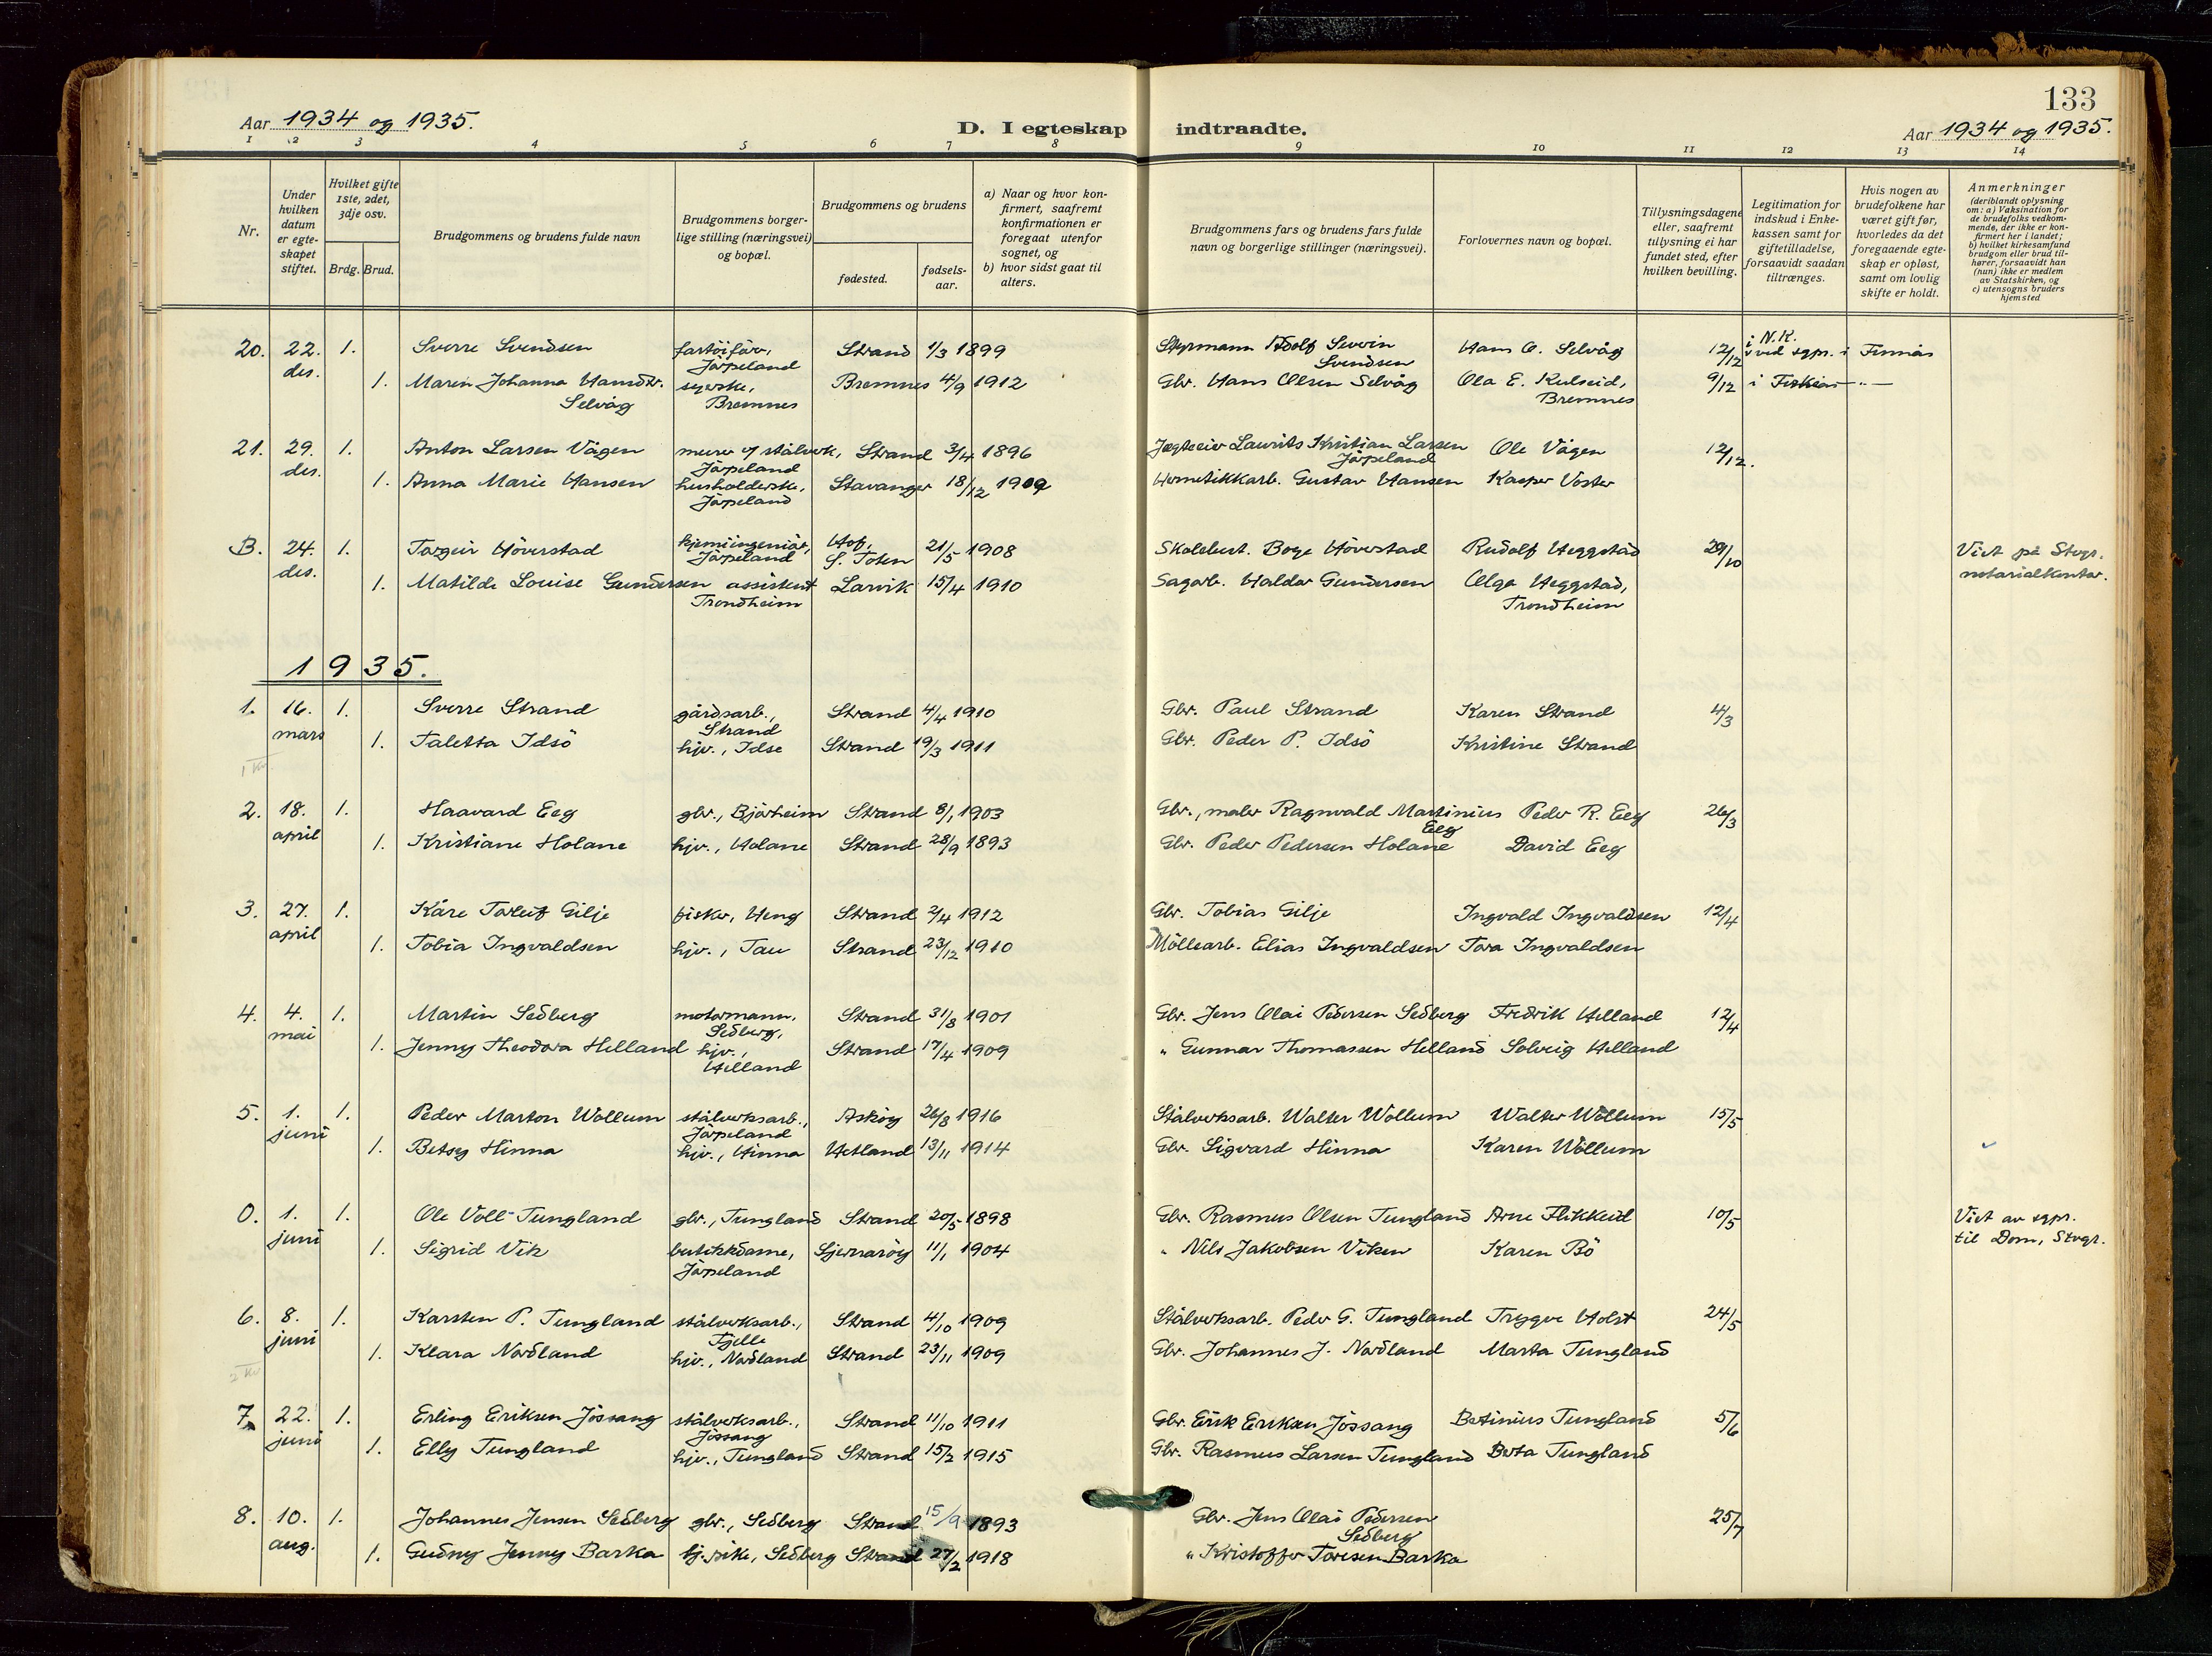 133
Aar 1934 og 1935.
D. I egteskap indtraadte.
Aar 1934 og 1935.
1 2 3 4 5 6 7 8 9 10 11 12 13 14
Nr.
Under hvilken datum er egteskapet stiftet.
Hvilket gifte 1ste, 2det, 3dje osv.
Brdg. Brud.
Brudgommens og brudens fulde navn
Brudgommens borgerlige stilling (næringsvei) og bopæl.
Brudgommens og brudens
fødested.
fødselsaar.
a) Naar og hvor konfirmert, saafremt konfirmationen er foregaat utenfor sognet, og
b) hvor sidst gaat til alters.
Brudgommens fars og brudens fars fulde navn og borgerlige stillinger (næringsvei).
Forlovernes navn og bopæl.
Tillysningsdagene eller, saafremt tillysning ei har fundet sted, efter hvilken bevilling.
Legitimation for indskud i Enkekassen samt for giftetilladelse, forsaavidt saadan tiltrænges.
Hvis nogen av brudefolkene har været gift før, hvorledes da det foregaaende egteskap er opløst, samt om lovlig skifte er holdt.
Anmerkninger (deriblandt oplysning om: a) Vaksination for de brudefolks vedkommende, der ikke er konfirmert her i landet; b) hvilket kirkesamfund brudgom eller brud tilhører, forsaavidt han (hun) ikke er medlem av Statskirken, og c) utensogns bruders hjemsted
20. 22. des. 1. Sverre Svendsen fartøiför., Jørpeland Strand 1/3 1899 Styrmann Adolf Severin Svendsen Hans O. Selvåg 12/12 i N.K. ved sgpr. i Finnås
1. Maren Johanna Hansdtr. Selvåg syerske, Bremnes Bremnes 4/9 1912 Gbr. Hans Olsen Selvåg Ola E. Kulseid, Bremnes 9/12 i
21. 29. des. 1. Anton Larsen Vågen murer v/ stålverk, Jørpeland Strand 3/4 1896 Jægteeier Laurits Kristian Larsen Jørpeland Ole Vågen 12/12.
1. Anna Marie Hansen husholderske, Jørpeland Stavanger 18/12 1909 Hermetikkarb. Gustav Hansen Kasper Voster
B. 24. des. 1. Torgeir Höverstad kjemiingeniör, Jørpeland Hof, S. Toten 21/5 1908 Skolebest. Boye Höverstad Rudolf Heggstad 29/10 Viet på Stvgr. notarialkontor.
1. Matilde Louise Gundersen assistent Trondheim Larvik 15/4 1910 Sagarb. Haldor Gundersen Olga Heggstad, Trondheim
1935.
1. 16. mars 1. Sverre Strand gårdsarb., Strand Strand 4/4 1910 Gbr. Paul Strand Karen Strand 4/3
1. Taletta Idsö hjv., Idse Strand 19/3 1911 Gbr. Peder P. Idsö Kristine Strand
1 Kv.
2. 18. april 1. Haavard Eeg gbr., Bjørheim Strand 8/1 1903 Gbr., maler Ragnvald Martinius Eeg Peder R. Eeg 26/3
1. Kristiane Holane hjv., Holane Strand 28/9 1893 Gbr. Peder Pedersen Holane David Eeg
3. 27. april 1. Kåre Torleif Gilje fisker, Heng Strand 2/4 1912 Gbr. Tobias Gilje Ingvald Ingvaldsen 12/4
1. Tobia Ingvaldsen hjv., Tau Strand 23/12 1910 Möllearb. Elias Ingvaldsen Tora Ingvaldsen
4. 4. mai 1. Martin Sedberg motormann, Sedberg, Strand 31/8 1901 Gbr. Jens Olai Pedersen Sedberg Fredrik Helland 12/4
1. Jenny Theodora Helland hjv., Helland Strand 17/4 1909 " Gunnar Thomassen Helland Solveig Helland
5. 1. juni 1. Peder Marton Wollum stålverksarb., Jørpeland Askøy 26/8 1916 Stålverksarb. Walter Wollum Walter Wollum 15/5
1. Betsy Hinna hjv., Hinna Hetland 13/11 1914 Gbr. Sigvard Hinna Karen Wollum
0. 1. juni 1. Ole Voll-Tungland gbr., Tungland Strand 20/5 1898 Gbr. Rasmus Olsen Tungland Arne Flikkeid 10/5 Viet av sgpr. til Dom, Stvgr.
1. Sigrid Vik butikkdame, Jørpeland Sjernarøy 11/1 1904 " Nils Jakobsen Viken Karen Bö
6. 8. juni 1. Karsten P. Tungland stålverksarb., Fjelle Strand 4/10 1909 Stålverksarb. Peder G. Tungland Trygve Holst 24/5
1. Klara Nordland hjv., Nordland Strand 23/11 1909 Gbr. Johannes J. Nordland Marta Tungland
2 Kv.
7. 22. juni 1. Erling Eriksen Jössang stålverksarb., Jössang Strand 11/10 1911 Gbr. Erik Eriksen Jössang Betinius Tungland 5/6
1. Elly Tungland hjv., Tungland Strand 15/2 1915 Gbr. Rasmus Larsen Tungland Berta Tungland
8. 10. aug. 1. Johannes Jensen Sedberg gbr., Sedberg Strand 15/9 1893 Gbr. Jens Olai Pedersen Sedberg 25/7
1. Gudny Jenny Barka Sedberg Strand 27/2 1918 " Kristoffer Toresen Barka